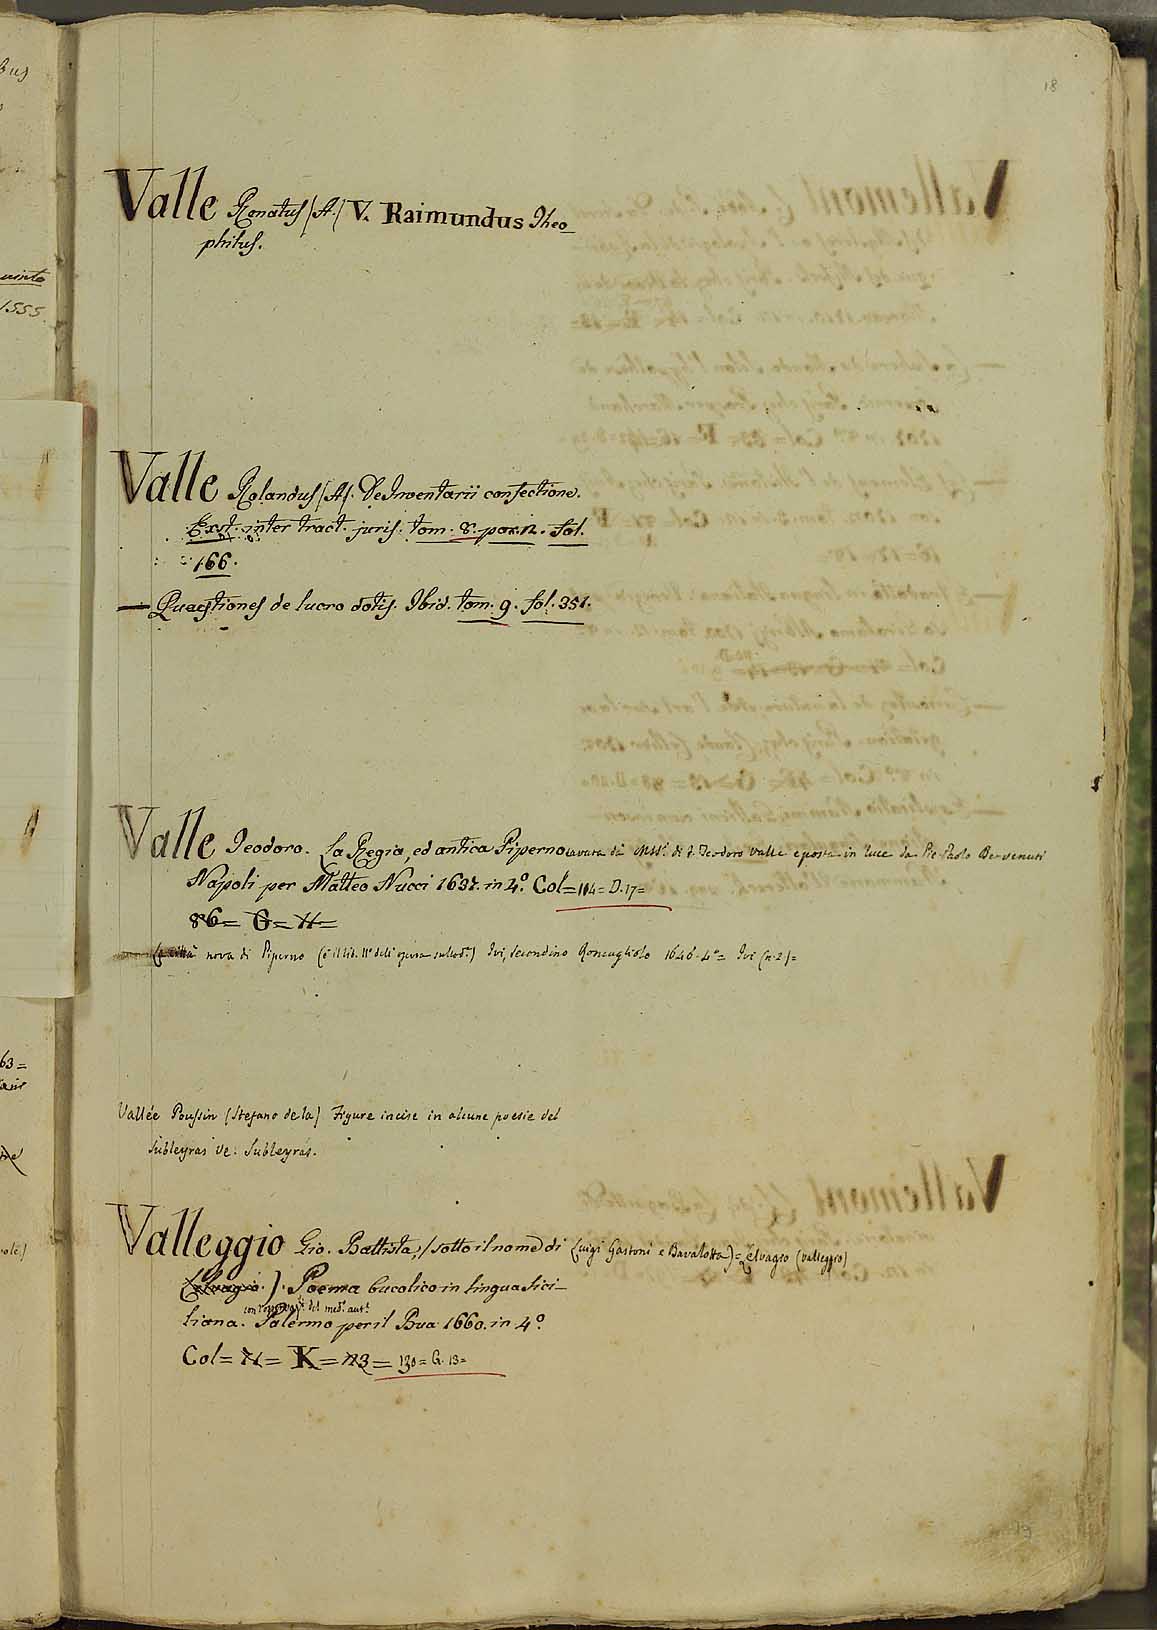 18
Valle Renatus (A.) V. Raimundus Theo-
philus.
Valle Rolandus (A). De Inventarii confectione.
Ext. inter tract. juris. tom. 8. par. 2. fol.
166.
— Quaestiones de lucro dotis. Ibid. tom. 9. fol. 351.
Valle Teodoro. La Regia, ed antica Piperno cavata da MSSi. di f. Teodoro Valle e posta in luce da Pie Paolo Benvenuti
Napoli per Matteo Nucci 1637. in 4º. Col= 104= D. 17=
86= G= 11=
— La città nova di Piperno (è il lib. IIº dell' opera sudd.ª) Ivi, Secondino Roncagliolo 1646. 4º= Ivi (n. 2)=
Vallée Poussin (Stefano de la) Figure incise in alcune poesie del
Subleyras Ve: Subleyras.
Valleggio Gio. Battista, (sotto il nome di Luigi Gastoni e Bavalotta)= Lelvagio (Valleggio)
Lelvagio.) Poema bucolico in lingua Sici-
con del med.º aut.e
liana. Palermo per il Bua 1660. in 4º.
Col= 71= K= 113= 130= G. 13=
19
uinto
1555.
63=